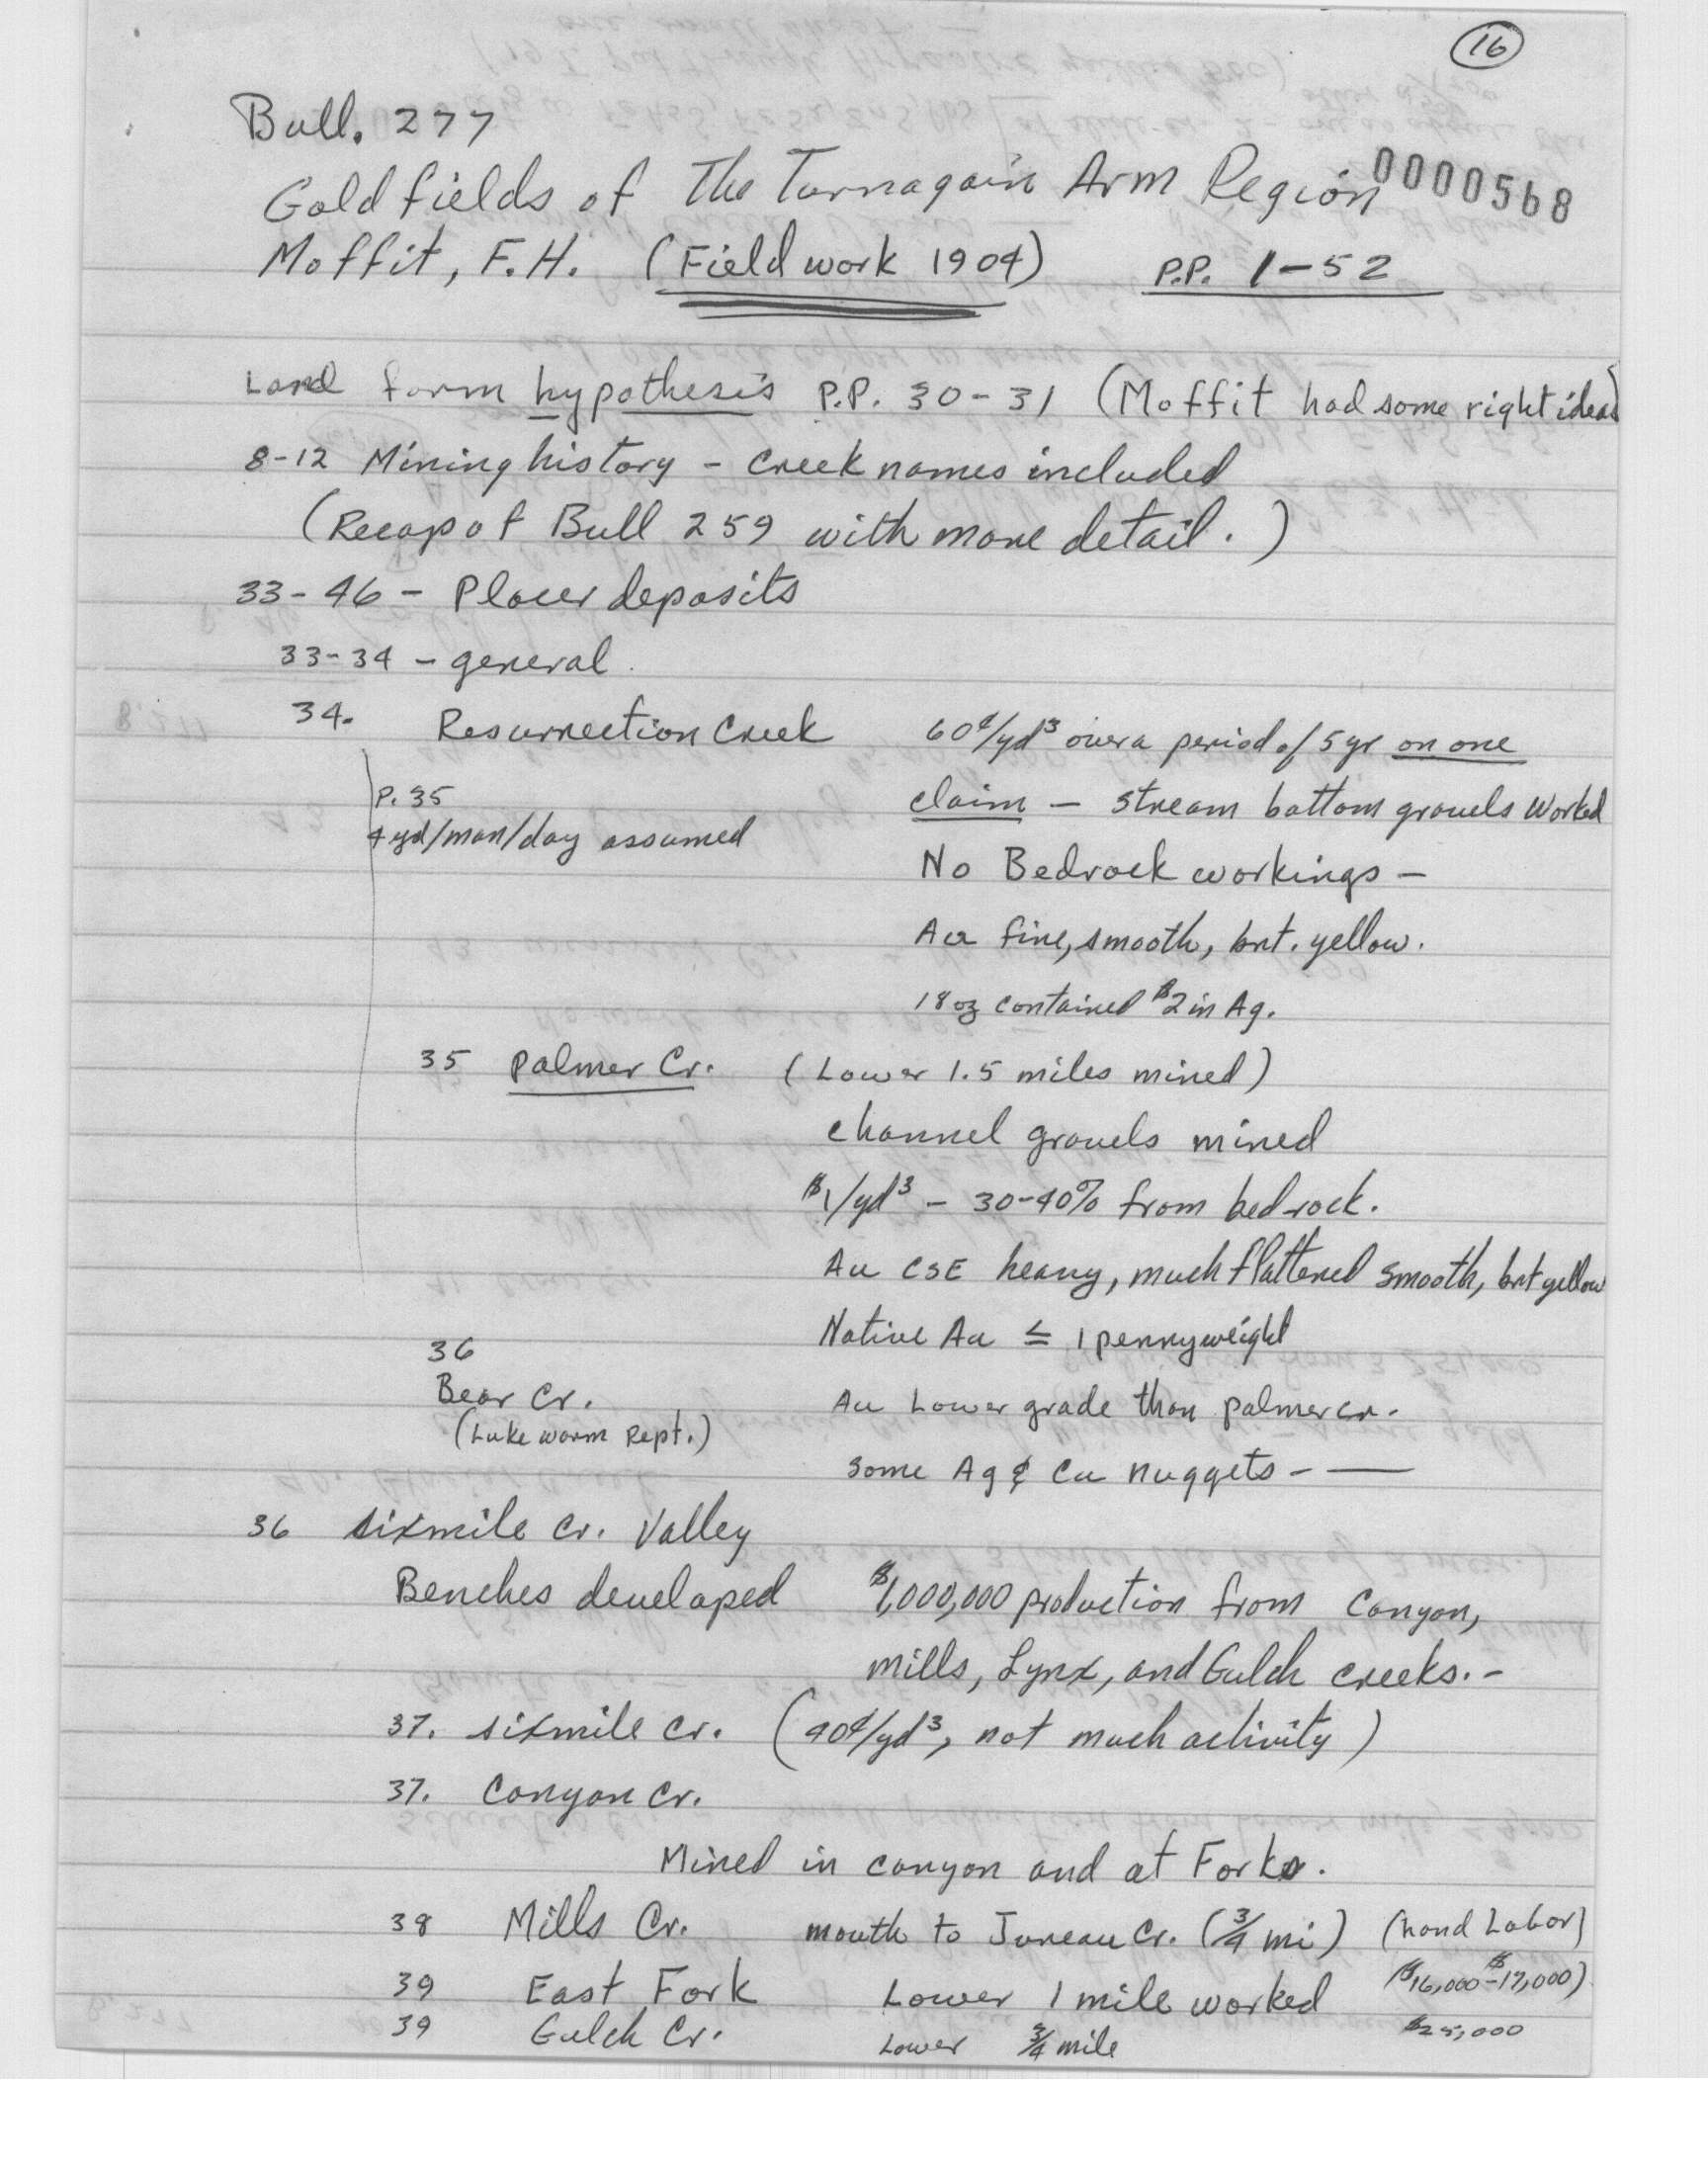 16
Bull. 277
0000568
Gold fields of The Turnagain Arm Region
Moffit, F.H. (Field work 1904) P.P. 1-52
Land form hypothesis P.P. 30-31 (Moffit had some right ideas)
8-12 Mining history - Creek names included
(Recap of Bull 259 with more detail.)
33-46 - Placer deposits
33-34 - general
34. Resurrection Creek 60¢/yd³ over a period of 5 yr on one
P. 35 claim - stream bottom gravels Worked
4 yd/man/day assumed
No Bedrock workings -
Au fine, smooth, brt. yellow.
18 oz contained $2 in Ag.
35 Palmer Cr. (Lower 1.5 miles mined)
channel gravels mined
$1/yd³ - 30-40% from bedrock.
Au CSE heavy, much flattened smooth, brt yellow
Native Au ≤ 1 pennyweight
36
Bear Cr. Au Lower grade than palmer cr.
(Luke warm Rept.)
Some Ag & Cu nuggets - —
36 sixmile Cr. Valley
Benches developed $1,000,000 production from Canyon,
mills, Lynx, and Gulch creeks. -
37. sixmile Cr. (40¢/yd³, not much activity)
37. Canyon Cr.
Mined in canyon and at Forks.
38 Mills Cr. mouth to Juneau Cr. (3/4 mi) (hand Labor)
39 East Fork Lower 1 mile worked ($16,000-$17,000)
39 Gulch Cr. Lower 3/4 mile $25,000